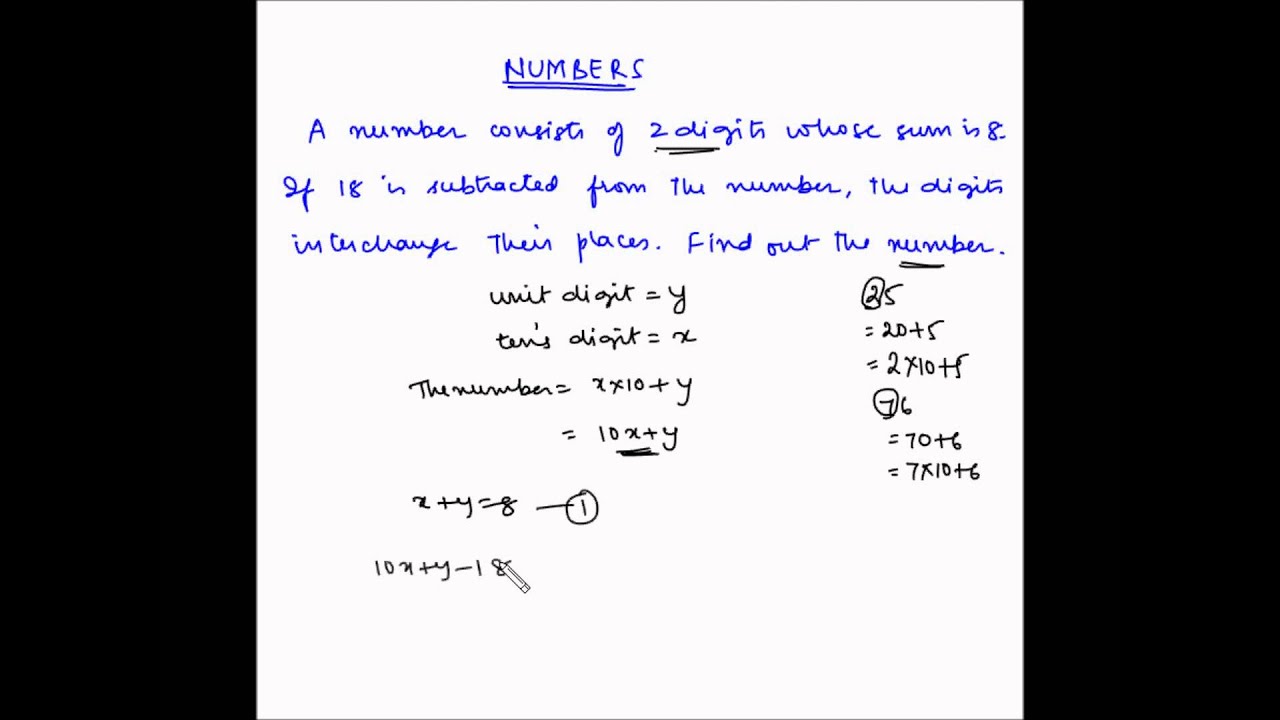 NUMBERS
A number consists of 2 digits whose sum is 8.
If 18 is subtracted from the number, the digits
interchange their places. Find out the number.
unit digit = y
ten's digit = x
The number = x×10+y
= 10x+y
x+y=8 — 1
10x+y-18
25
= 20+5
= 2×10+5
76
= 70+6
= 7×10+6